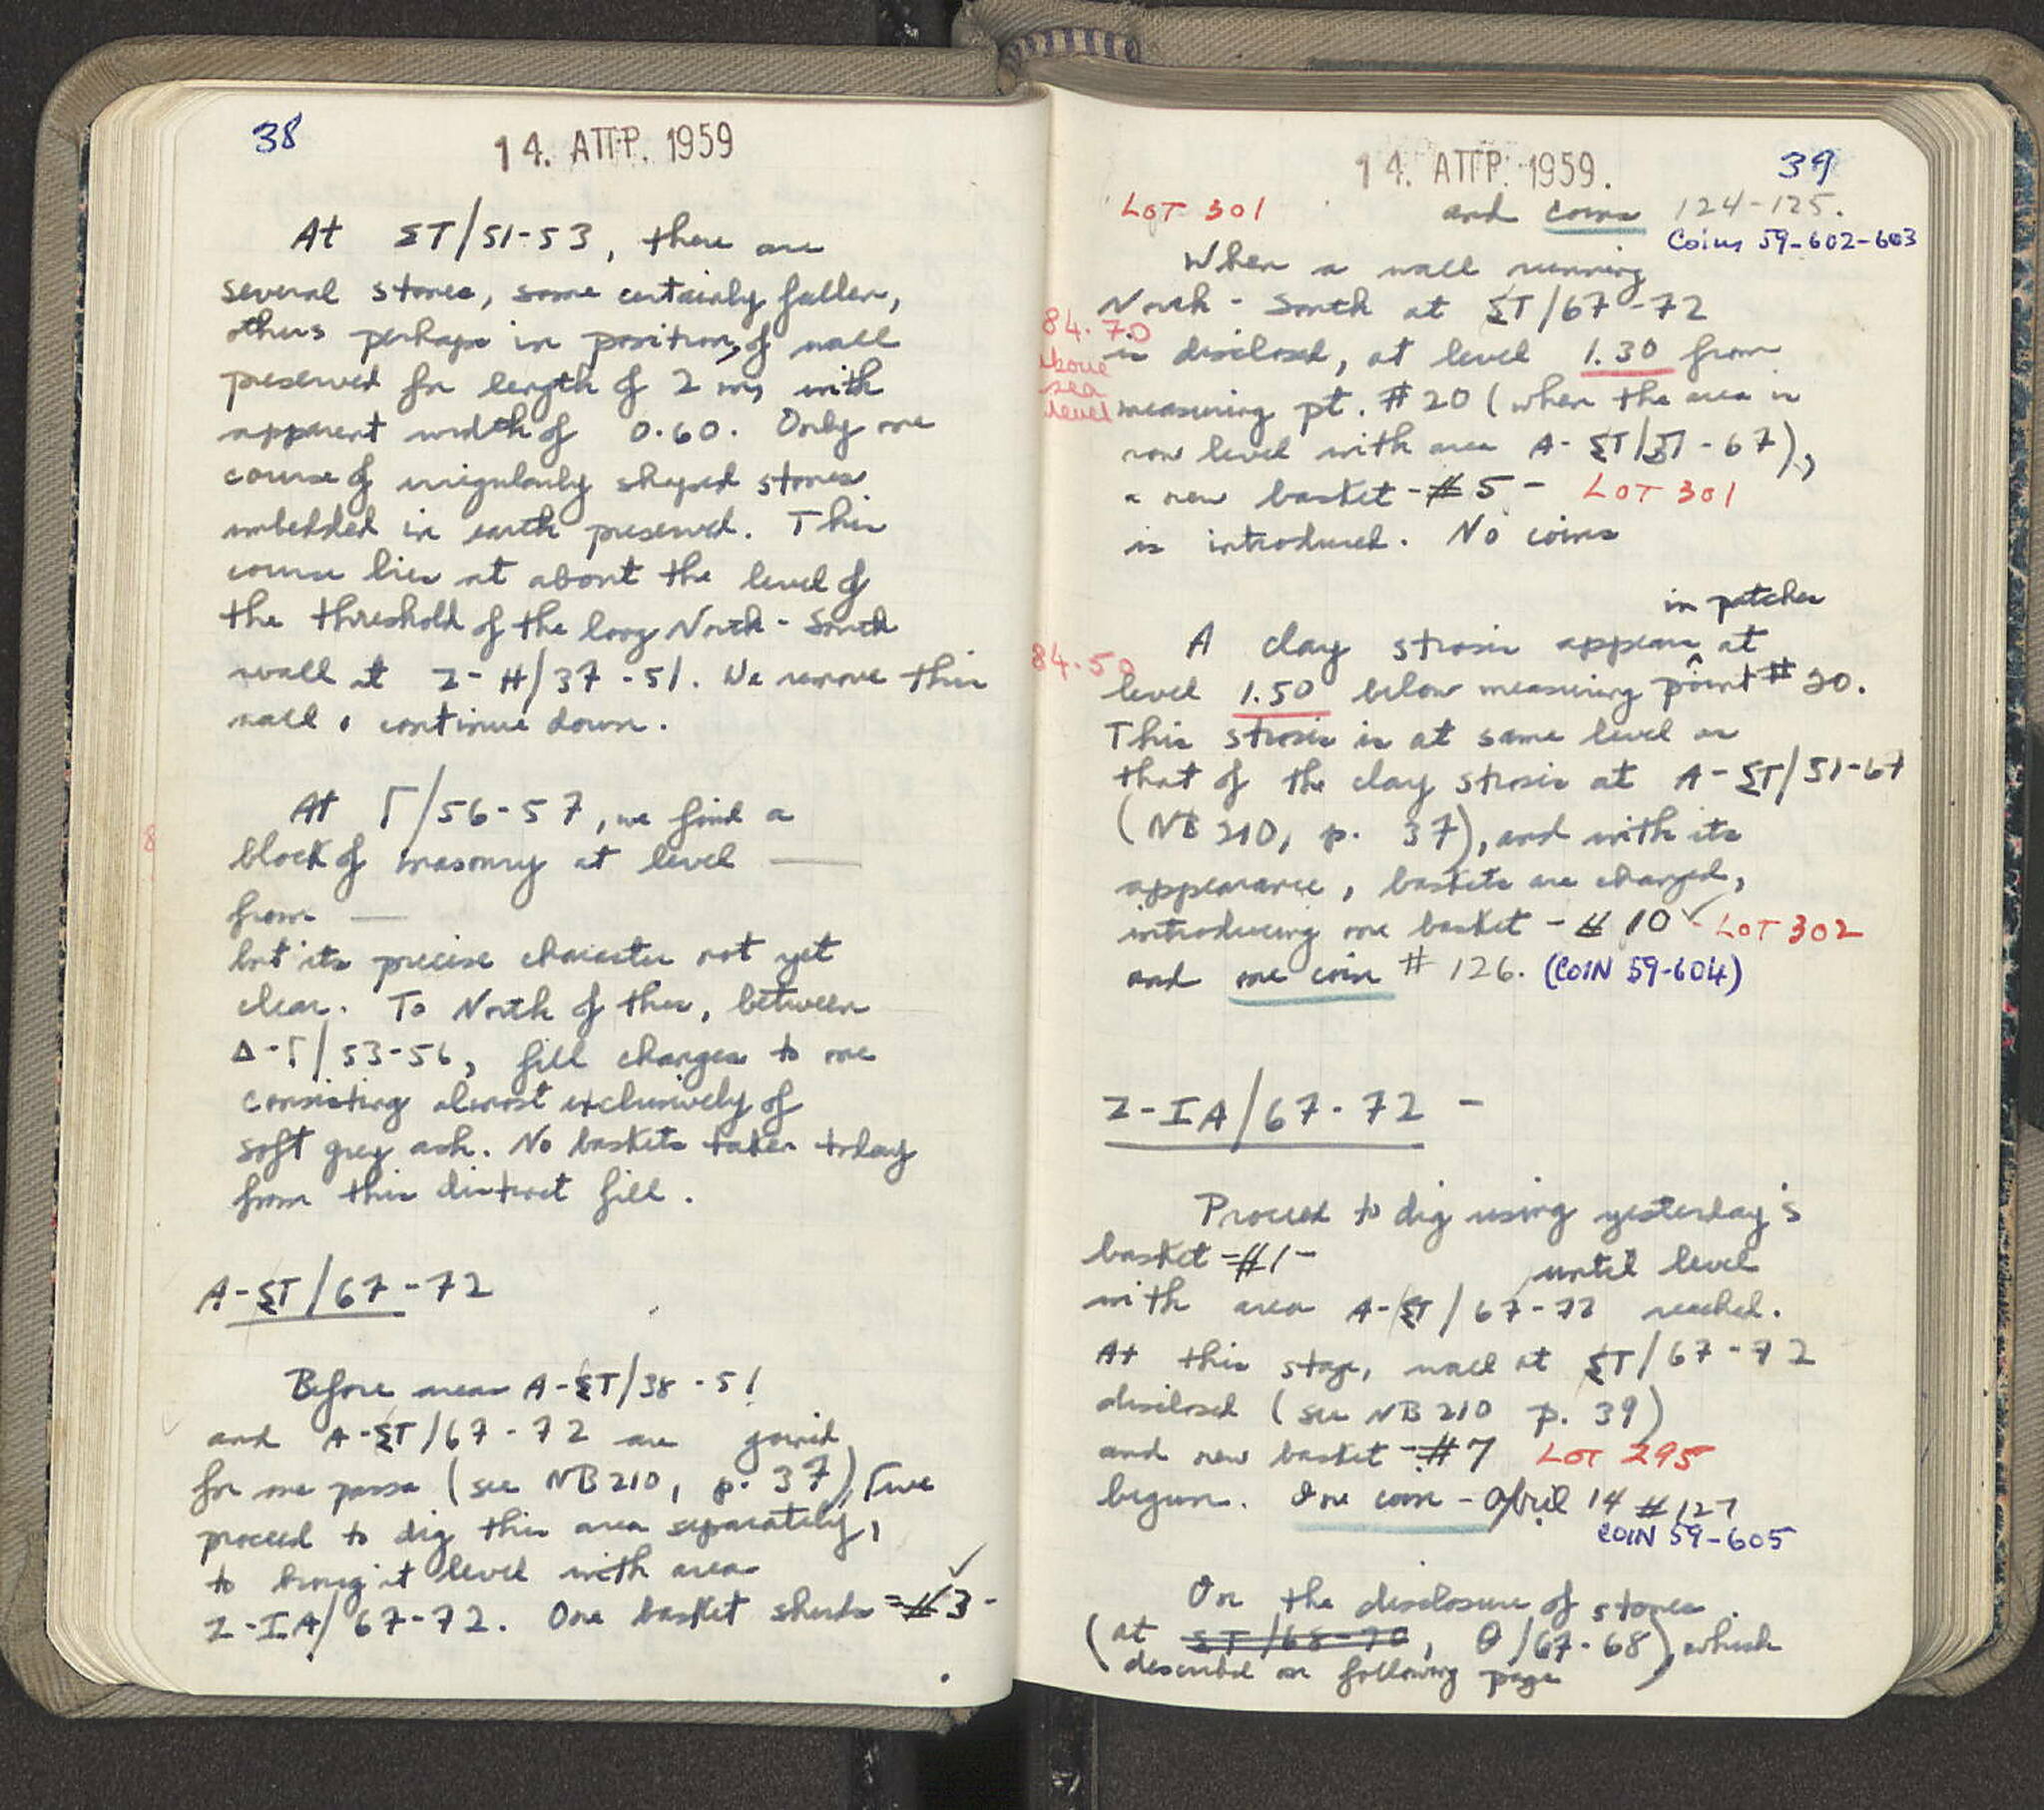 38
14. ΑΠΡ. 1959
At ΣΤ/51-53, there are
several stones, some certainly fallen,
others perhaps in position, of wall
preserved for length of 2 ms, with
apparent width of 0.60. Only one
course of irregularly shaped stones
imbedded in earth preserved. This
course lies at about the level of
the threshold of the long North-South
wall at Z-H/37-51. We remove this
wall, continue down.
At Γ/56-57, we find a
block of masonry at level —
from —
but its precise character not yet
clear. To North of this, between
Δ-Γ/53-56, fill changes to one
consisting almost exclusively of
soft grey ash. No baskets taken today
from this distinct fill.
8
A-ΣΤ/67-72
Before areas A-ΣΤ/38-51
and A-ΣΤ/67-72 are joined
for one passa (see NB 210, p. 37), we
proceed to dig this area separately,
to bring it level with area
Z-IA/67-72. One basket sherds -#3-
14. ΑΠΡ. 1959.
39
LOT 301
and coins 124-125.
Coins 59-602-603
When a wall running
North-South at ΣΤ/67-72
is disclosed, at level 1.30 from
84.70
above
sea
level
measuring pt. #20 (when the area is
now level with area A-ΣΤ/51-67),
a new basket -#5- LOT 301
is introduced. No coins
in patches
A clay strosis appears ^ at
84.50
level 1.50 below measuring point #20.
This strosis is at same level as
that of the clay strosis at A-ΣΤ/51-67
(NB 210, p. 37), and with its
appearance, baskets are changed,
introducing one basket - #10 - LOT 302
and one coin #126. (COIN 59-604)
Z-IA/67-72 -
Proceed to dig using yesterday's
basket -#1-
until level
with area A-ΣΤ/67-72 reached.
At this stage, wall at ΣΤ/67-72
disclosed (see NB 210 p. 39)
and new basket -#7 LOT 295
begun. One coin - April 14 #127
COIN 59-605
On the disclosure of stones
(at ΣΤ/68-70, Θ/67-68), which
described on following page